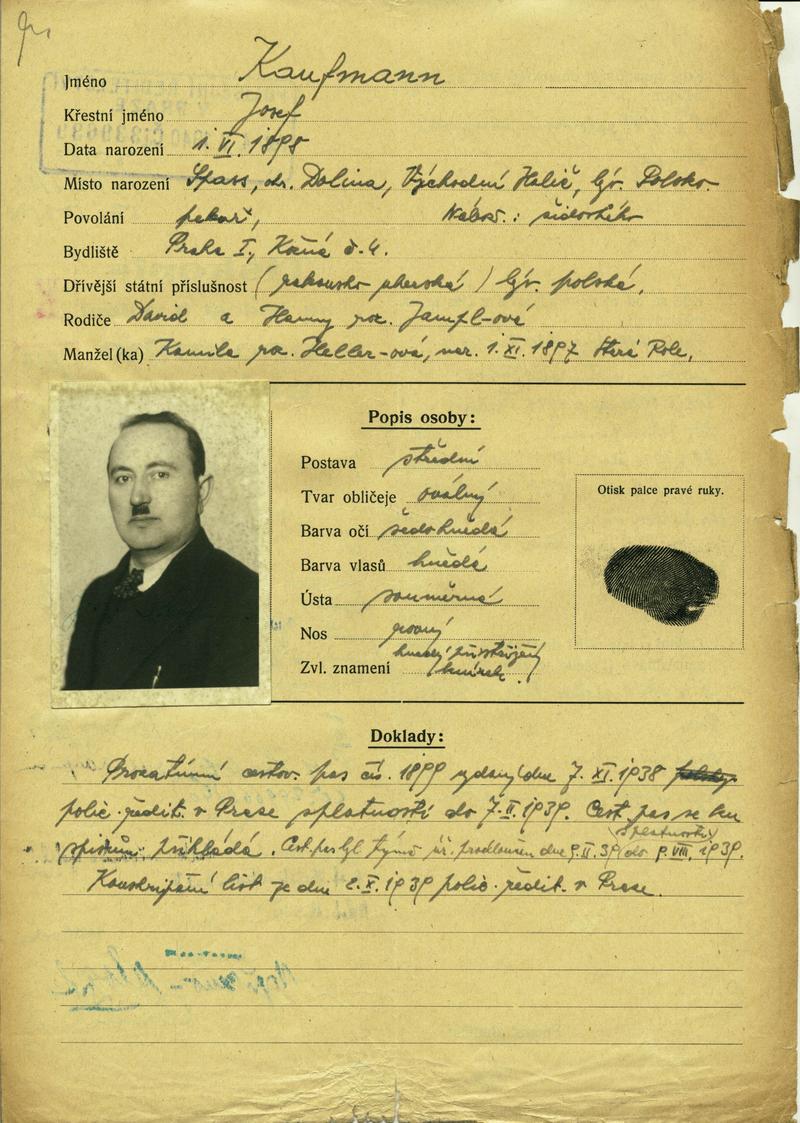 Jméno Kaufmann
Křestní jméno Josef
Data narození 1. VI. 1898
Místo narození Spass, okr. Dolina, Východní Halič, býv. Polsko.
Povolání pekař, Nábož.: židovského
Bydliště Praha I., Kozná č. 4.
Dřívější státní příslušnost (rakousko uherská) býv. polská.
Rodiče David a Hanny roz. Jampl-ová
Manžel (ka) Kamila roz. Heller-ová, nar. 1. XI. 1897 Stará Role,
Popis osoby:
Postava střední
Tvar obličeje oválný
Barva očí šedohnědá
Barva vlasů hnědá
Ústa souměrná
Nos rovný
Zvl. znamení hnědý přistřižený
knírek.
Otisk palce pravé ruky.
Doklady:
cestov. pas čís. 1899 vydaný dne 7. XI. 1938
polic. ředit. v Praze splatností do 7. II. 1939. Cest. pas se ku
spisům přikládá. Cest. pas byl týmž úř. prodloužen dne 9. II. 39 (splatností) do 9. VIII. 1939.
Konskripční list ze dne 2. X. 1939 polic. ředit. v Praze.